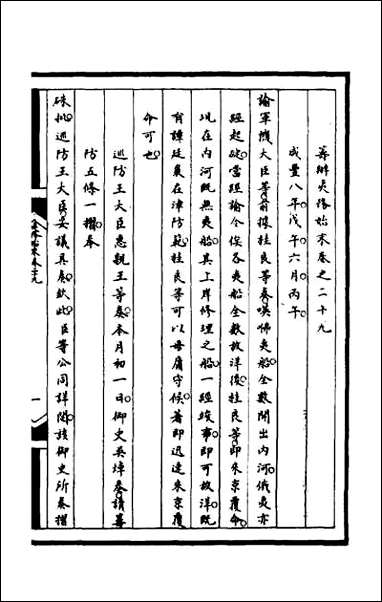 籌辦夷務始末卷之二十九
咸豐八年戊午六月丙午
諭軍機大臣等前據桂良等奏嘆佛夷船全數開出內河俄夷亦
經起碇當經諭令俟各夷船全數放洋後桂良等即來京覆命
現在內河既無夷船其上岸修理之船一經竣事即可放洋既
有譚廷襄在津防範桂良等可以毋庸守候著即迅速來京覆
命可也
巡防王大臣惠親王等奏本月初一日御史吳焯奏請籌
防五條一摺奉
硃批巡防王大臣妥議具奏欽此臣等公同詳閱該御史所奏摺
一